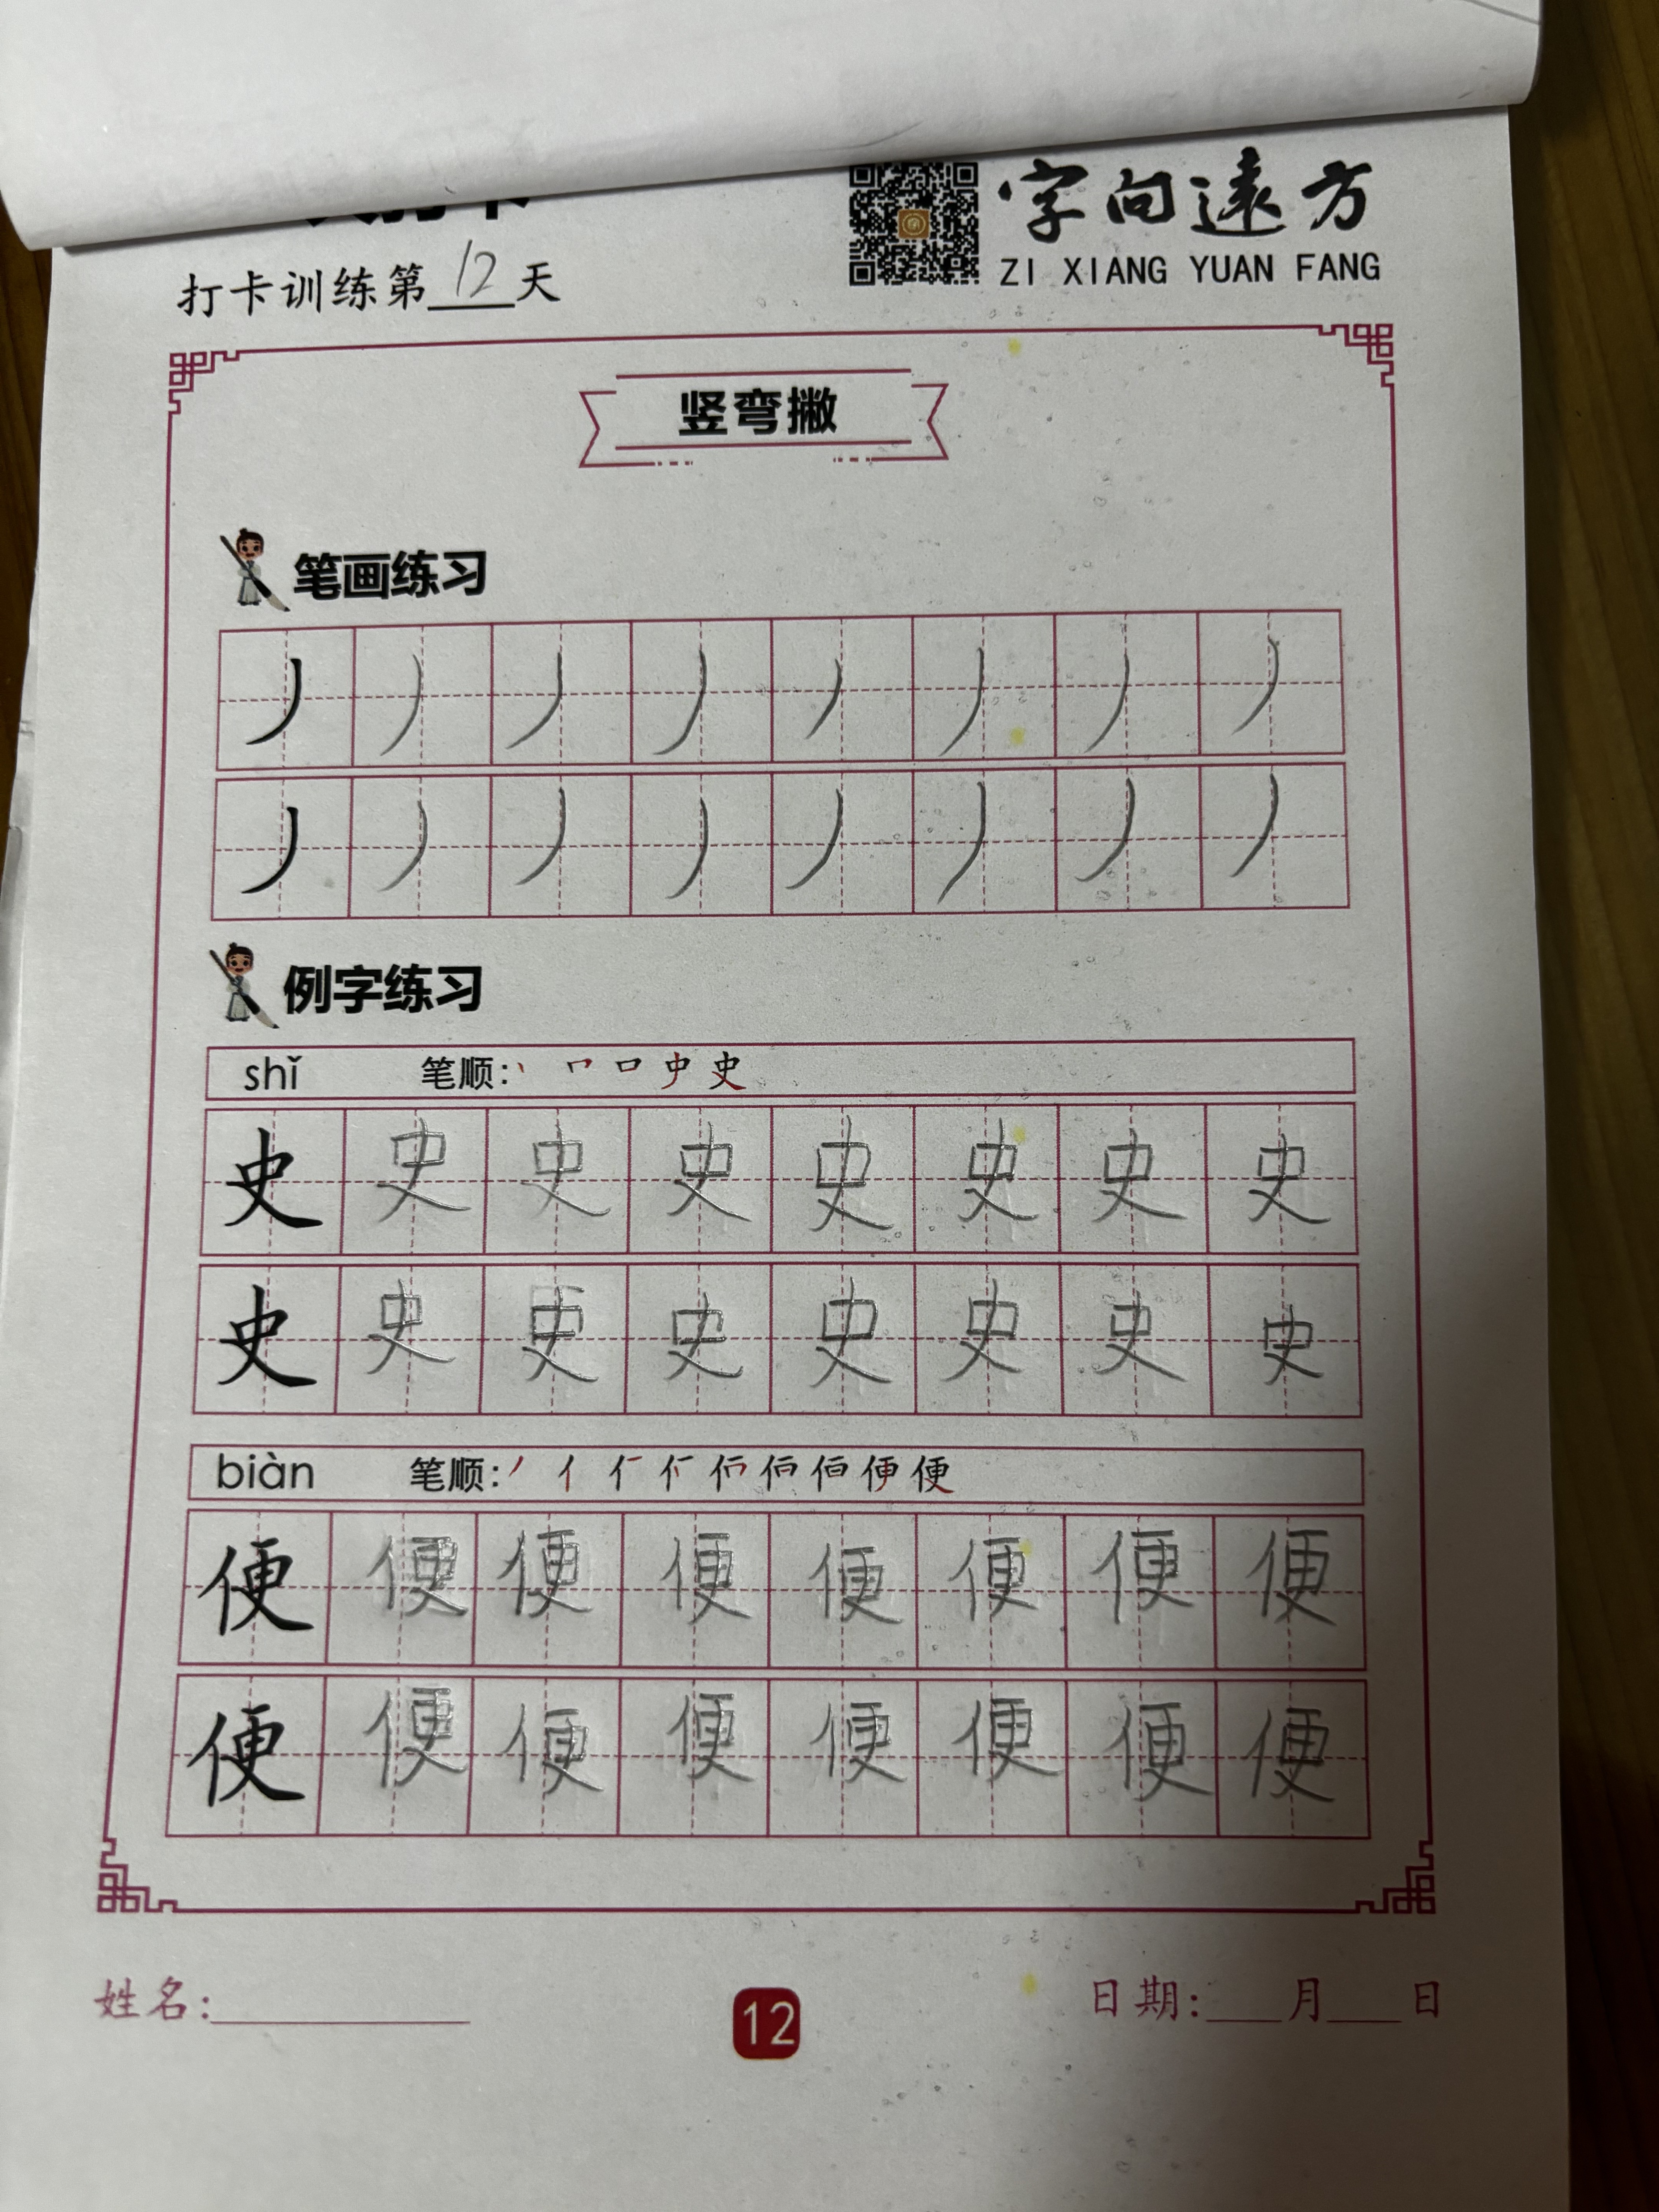 字向遠方
ZI XIANG YUAN FANG
打卡训练第12天
竖弯撇
笔画练习
丿 丿 丿 丿 丿 丿 丿 丿
丿 丿 丿 丿 丿 丿 丿 丿
例字练习
shǐ 笔顺: 丨 𠃍 口 史 史
史 史 史 史 史 史 史 史
史 史 史 史 史 史 史 史
biàn 笔顺: 丿 亻 便
便 便 便 便 便 便 便 便
便 便 便 便 便 便 便 便
姓名:
12
日期: 月 日